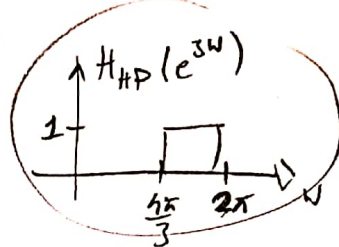 H_HP(e^jω)
1
4π/3 2π ω